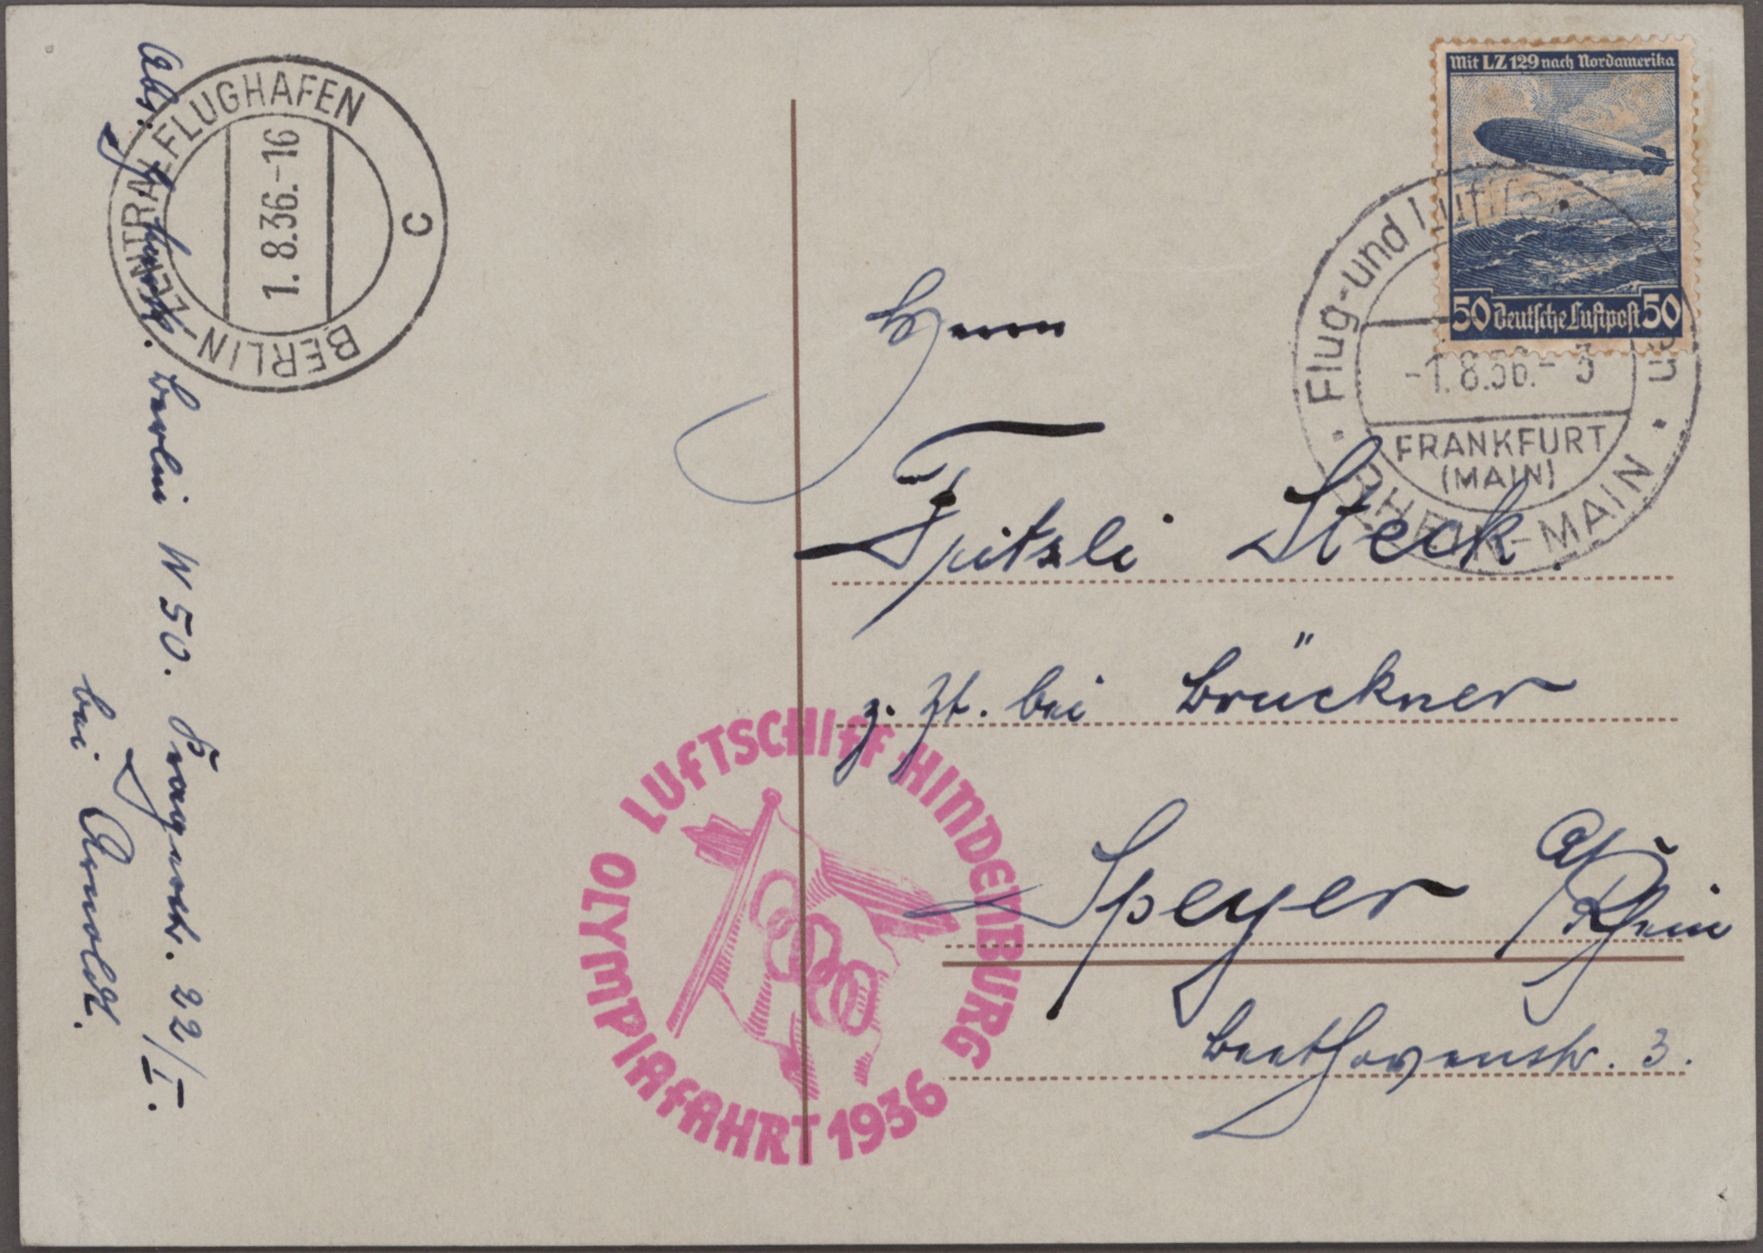 Mit LZ 129 nach Nordamerika
50 Deutsche Luftpost 50
Flug- und Luft
-1.8.36.- 3
FRANKFURT
(MAIN)
RHEIN-MAIN
BERLIN-ZENTRALFLUGHAFEN
1.8.36.-16
c
Herrn
Fritzli Steck.
z. Zt. bei Brückner
Speyer a/Rhein
Beethovenstr. 3.
LUFTSCHIFF HINDENBURG
OLYMPIAFAHRT 1936
Abs.
Berlin W 50. Pragerstr. 22/I.
bei Arnoldt.